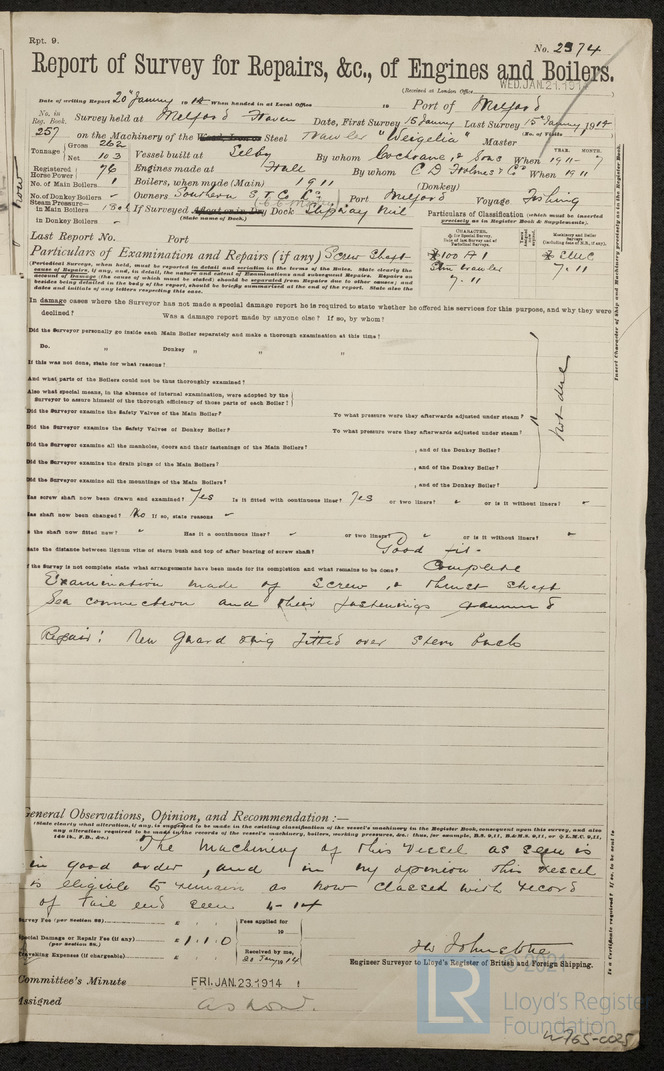 Rpt. 9.
No. 2374
Report of Survey for Repairs, &c., of Engines and Boilers.
(Received at London Office WED. JAN. 21. 1914 )
Date of writing Report 20 January 1914 When handed in at Local Office 19 Port of Milford
No. in Reg. Book. Survey held at Milford Haven Date, First Survey 15 January Last Survey 15th January 1914
257 on the Machinery of the Wood, Iron or Steel Trawler "Weigelia" Master (No. of Visits )
Tonnage Gross 262 Net 103 Vessel built at Selby By whom Cochrane & Sons When 1911 - 7 YEAR. MONTH.
Registered Horse Power 76 Engines made at Hull By whom C D Holmes & Co When 1911
No. of Main Boilers 1 Boilers, when made (Main) 1911 (Donkey)
No. of Donkey Boilers - Owners Southern S T C Co Port Milford Voyage Fishing
Steam Pressure in Main Boilers 180 If Surveyed Afloat or in Dry Dock Slipway Mil
in Donkey Boilers - (State name of Dock.)
Particulars of Classification (which must be inserted precisely as in Register Book & Supplements).
Last Report No. Port
Particulars of Examination and Repairs (if any) Screw Shaft
✠ 100 A 1 ✠ LMC
Stm Trawler 7.11
7.11
(Periodical Surveys, when held, must be reported in detail and seriatim in the terms of the Rules. State clearly the cause of Repairs, if any, and, in detail, the nature and extent of Examinations and subsequent Repairs. Repairs on account of Damage (the cause of which must be stated) should be separated from Repairs due to other causes; and besides being detailed in the body of the report, should be briefly summarised at the end of the report. State also the dates and initials of any letters respecting this case.
In damage cases where the Surveyor has not made a special damage report he is required to state whether he offered his services for this purpose, and why they were
declined? Was a damage report made by anyone else? If so, by whom?
Did the Surveyor personally go inside each Main Boiler separately and make a thorough examination at this time?
Do. " Donkey " " "
If this was not done, state for what reasons?
And what parts of the Boilers could not be thus thoroughly examined?
Also what special means, in the absence of internal examination, were adopted by the Surveyor to assure himself of the thorough efficiency of those parts of each Boiler?
Did the Surveyor examine the Safety Valves of the Main Boiler? To what pressure were they afterwards adjusted under steam?
Did the Surveyor examine the Safety Valves of Donkey Boiler? To what pressure were they afterwards adjusted under steam?
Did the Surveyor examine all the manholes, doors and their fastenings of the Main Boilers? , and of the Donkey Boiler?
Did the Surveyor examine the drain plugs of the Main Boilers? , and of the Donkey Boiler?
Did the Surveyor examine all the mountings of the Main Boilers? , and of the Donkey Boiler?
not due
Has screw shaft now been drawn and examined? Yes Is it fitted with continuous liner? Yes or two liners? " or is it without liners? "
Has shaft now been changed? No If so, state reasons "
Is the shaft now fitted new? " Has it a continuous liner? " or two liners? " or is it without liners? "
State the distance between lignum vitæ of stern bush and top of after bearing of screw shaft? Good fit -
If the Survey is not complete state what arrangements have been made for its completion and what remains to be done? Complete
Examination made of Screw, & thrust shaft
Sea connection and their fastenings examined
Repair: New guard ring fitted over stern bush
General Observations, Opinion, and Recommendation:—
(State clearly what alteration, if any, is suggested to be made in the existing classification of the vessel's machinery in the Register Book, consequent upon this survey, and also any alteration required to be made in the records of the vessel's machinery, boilers, working pressures, &c.: thus, for example, B.S. 9,11, B.&M.S. 9,11, or ✠ L.M.C. 9,11, 140 lb., F.D., &c.)
The machinery of this vessel as seen is
in good order, and in my opinion this vessel
is eligible to remain as now classed with record
of tail end seen 1-14
Survey Fee (per Section 28) £ : :
Special Damage or Repair Fee (if any) (per Section 28.) £ 1 . 1 . 0
Travelling Expenses (if chargeable) £ : :
Fees applied for 19
Received by me, 21 Jany 1914
H Johnstone
Engineer Surveyor to Lloyd's Register of British and Foreign Shipping.
Committee's Minute FRI. JAN. 23. 1914
Assigned as now.
Insert Character of Ship and Machinery precisely as in the Register Book.
Is a Certificate required? If so, to be sent to
© 2021
LR
Lloyd's Register
Foundation
W765-0025